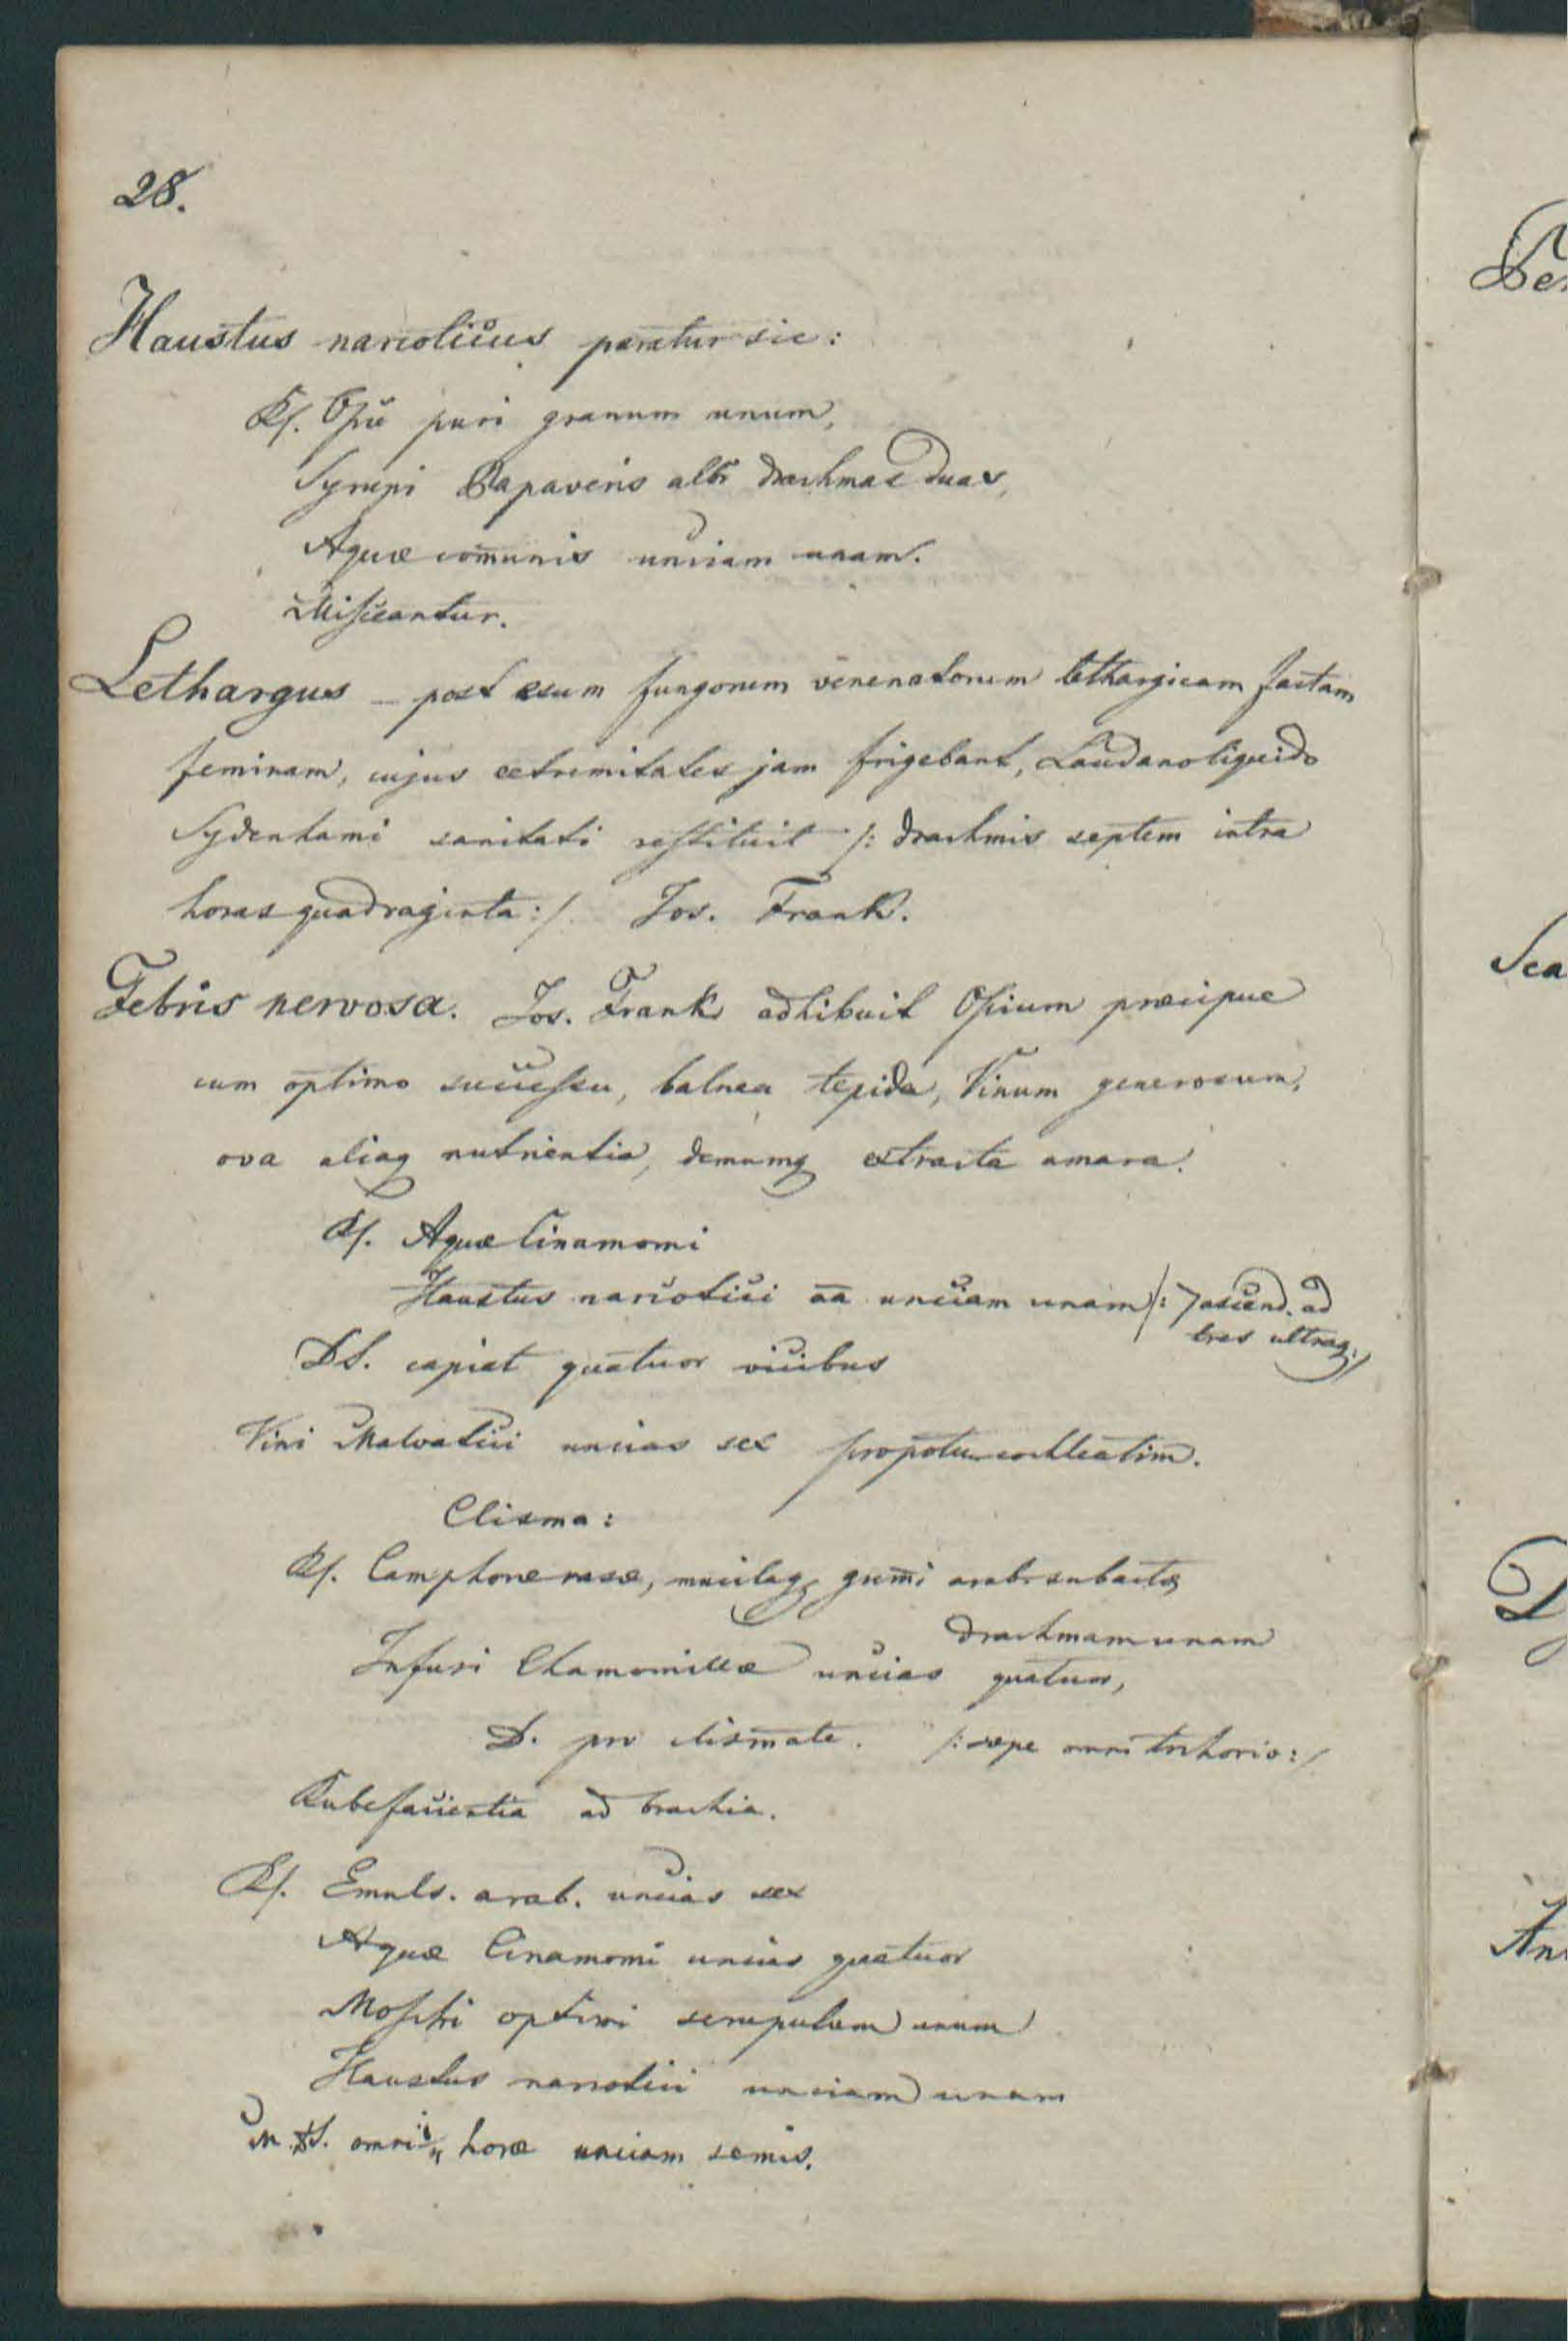 28.
Haustus narcoticus paratur sic:
Rf. Opii puri granum unum,
Syrupi Papaveris albi drachmas duas,
Aquæ com̄unis unciam unam.
Misceantur.
Lethargus – post esum fungorum venenatorum lethargicam factam
feminam, cujus extremitates jam frigebant, Laudano liquido
Sydenhami sanitati restituit /: drachmis septem intra
horas quadraginta :/ Jos. Frank.
Febris nervosa. Jos. Frank adhibuit Opium præcipue
cum optimo successu, balnea tepida, Vinum generosum,
ova aliaq nutrientia, demumq extracta amara.
Rf. Aquæ Cinamomi
Haustus narcotici aa unciam unam /: ascend. ad
tres ultraq :/
DS. capiat quatuor vicibus
Vini Malvatici uncias sex pro potu cochleatim.
Clisma:
Rf. Camphoræ rasæ, mucilag gum̄i arab. subactæ
drachmam unam
Infusi Chamomillæ uncias quatuor,
D. pro clismate. /: sæpe omni trihorio :/
Rubefacientia ad brachia.
Rf. Emuls. arab. uncias sex
Aquæ Cinamomi uncias quatuor
Moschi optimi scrupulum unum
Haustus narcotici unciam unam
M. DS. omni horæ unciam semis.
Sca